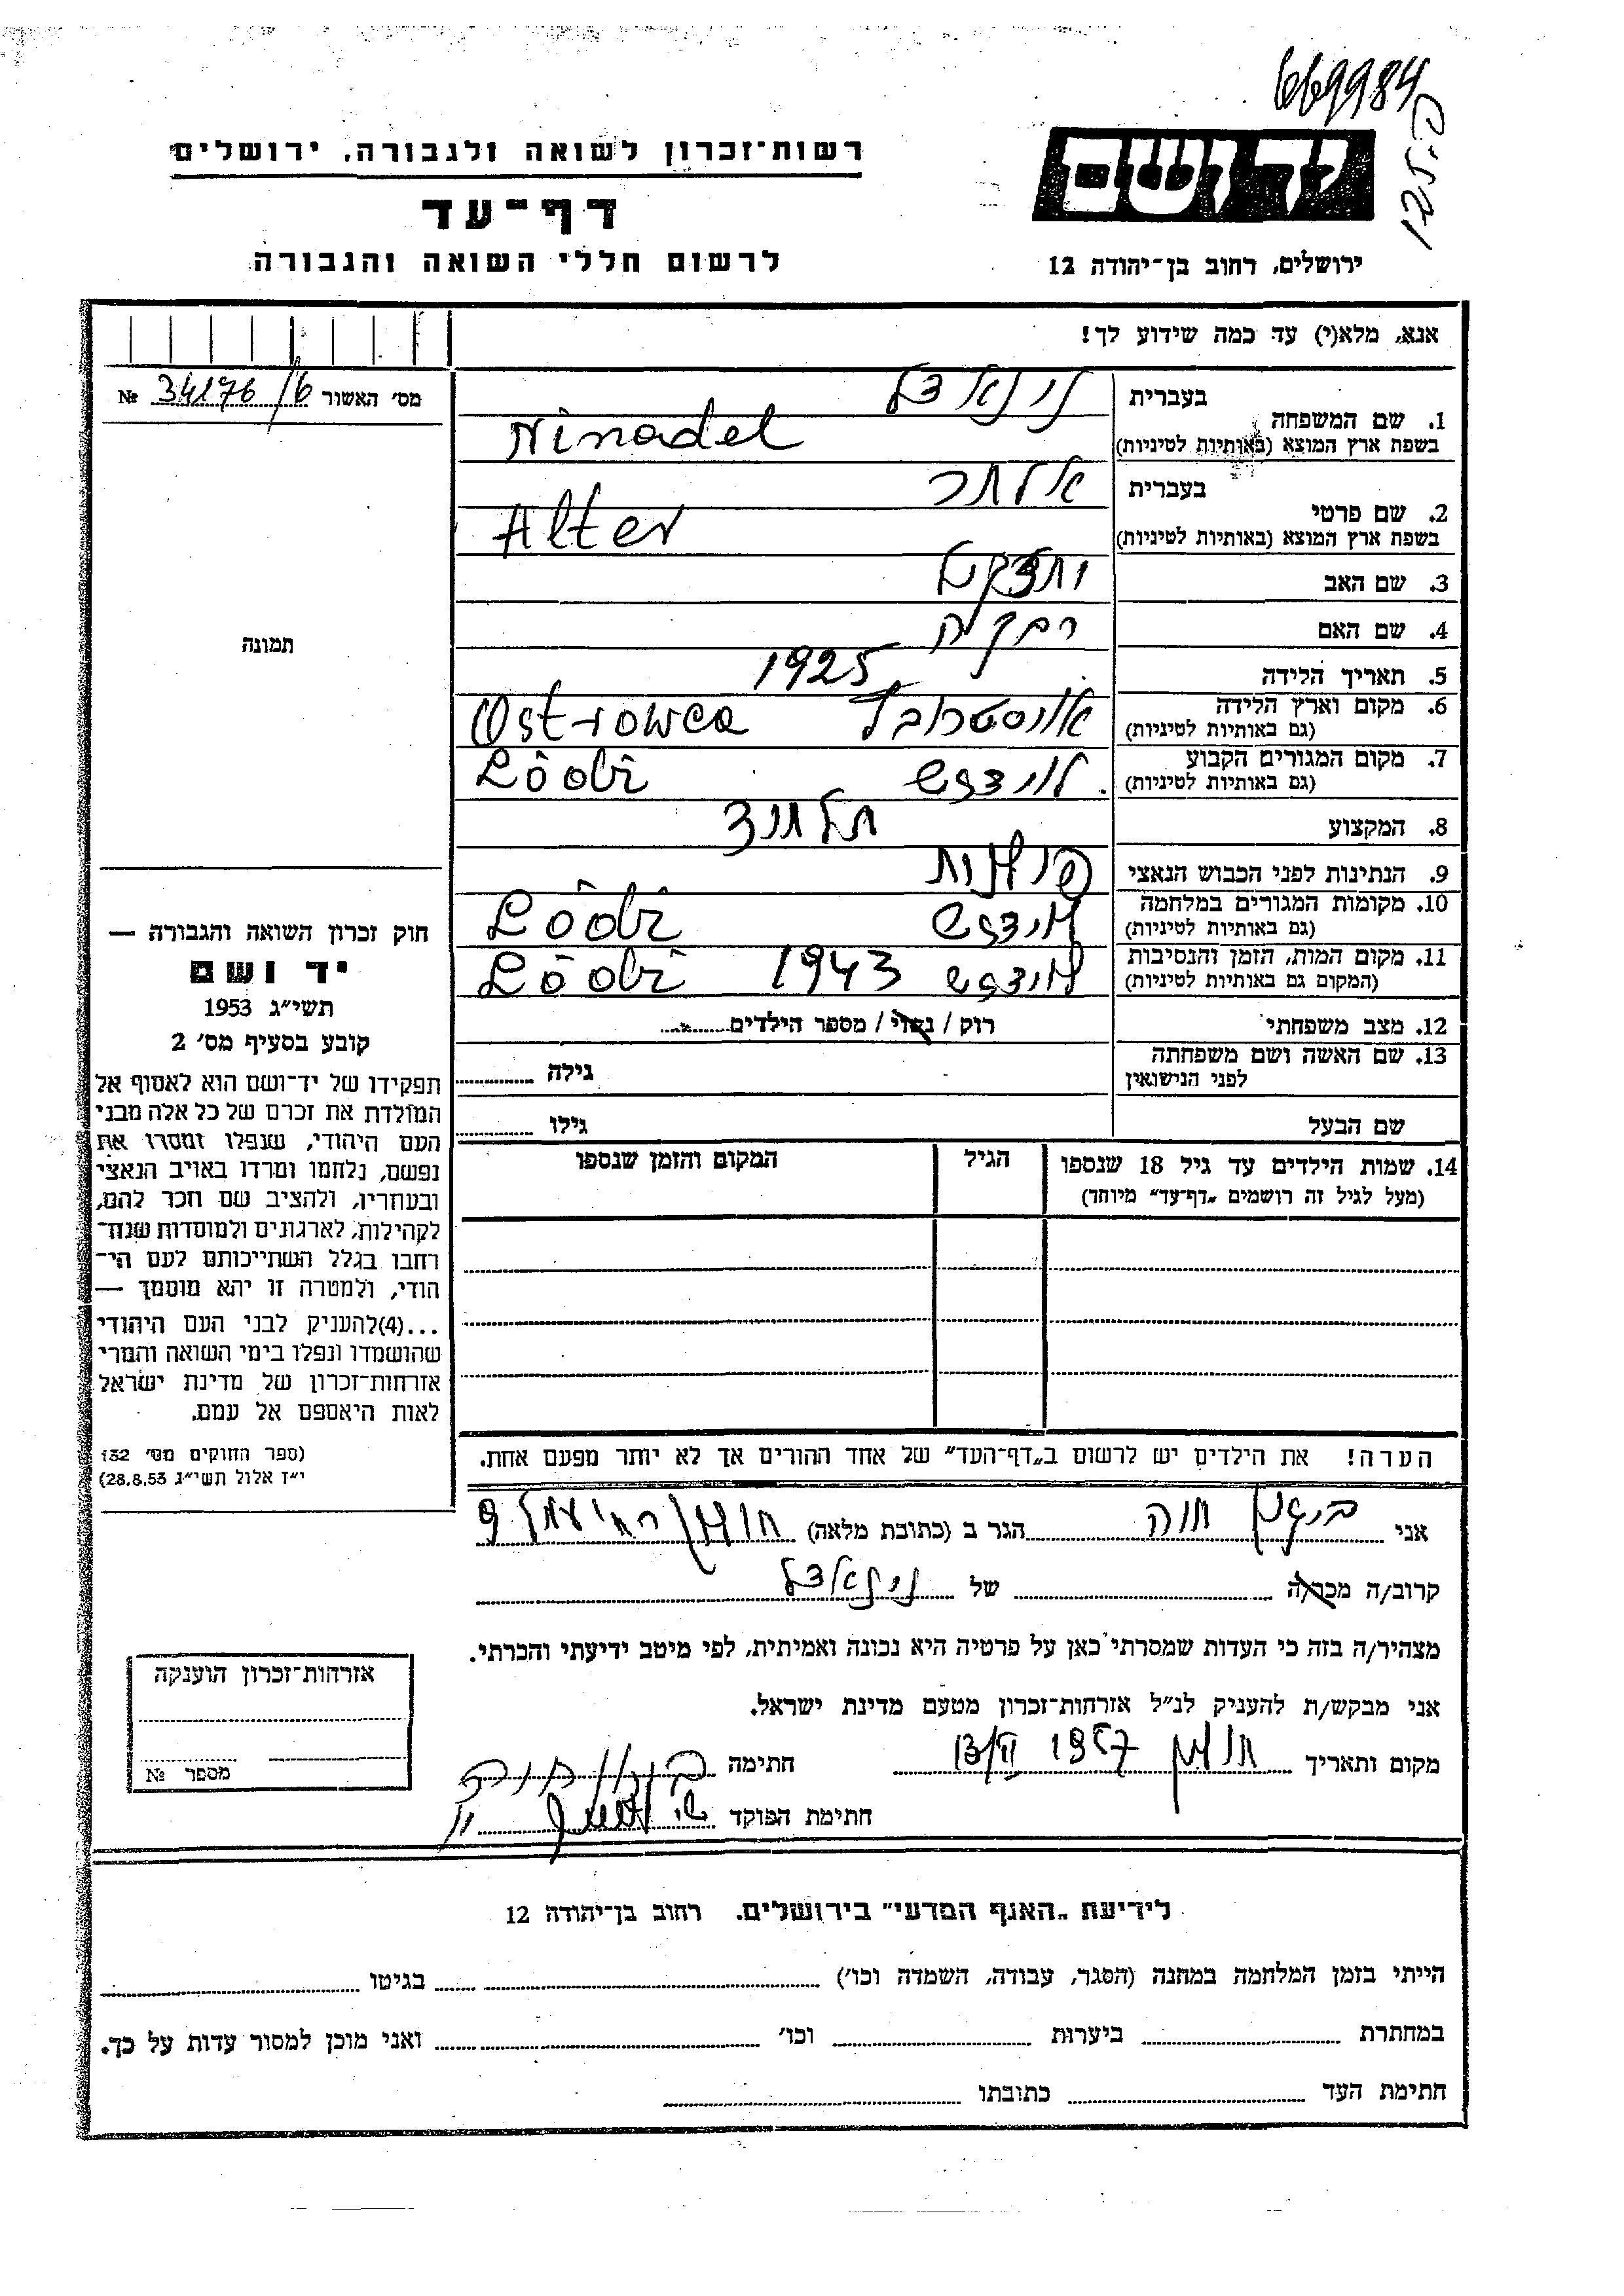 669984
רשות-זכרון לשואה ולגבורה, ירושלים
יד ושם
דף-עד
לרשום חללי השואה והגבורה
ירושלים, רחוב בן-יהודה 12
אנא, מלא(י) עד כמה שידוע לך!
מס׳ האשור № 34176/6
1. שם המשפחה בעברית נינאדל
בשפת ארץ המוצא (באותיות לטיניות) Ninadel
2. שם פרטי בעברית אלתר
בשפת ארץ המוצא (באותיות לטיניות) Alter
3. שם האב יחזקאל
4. שם האם רבקה
5. תאריך הלידה 1925
6. מקום וארץ הלידה
(גם באותיות לטיניות) Ostrowca
7. מקום המגורים הקבוע לודזש
(גם באותיות לטיניות) Lodz
8. המקצוע תלמיד
9. הנתינות לפני הכבוש הנאצי פולנית
10. מקומות המגורים במלחמה לודזש
(גם באותיות לטיניות) Lodz
11. מקום המות, הזמן והנסיבות לודזש 1943
(המקום גם באותיות לטיניות) Lodz
12. מצב משפחתי רוק / נשוי / מספר הילדים
13. שם האשה ושם משפחתה
לפני הנישואין
גילה
שם הבעל
גילו
14. שמות הילדים עד גיל 18 שנספו
(מעל לגיל זה רושמים „דף-עד״ מיוחד)
הגיל
המקום והזמן שנספו
הערה! את הילדים יש לרשום ב„דף-העד״ של אחד ההורים אך לא יותר מפעם אחת.
תמונה
חוק זכרון השואה והגבורה —
יד ושם
תשי״ג 1953
קובע בסעיף מס׳ 2
תפקידו של יד-ושם הוא לאסוף אל
המולדת את זכרם של כל אלה מבני
העם היהודי, שנפלו ומסרו את
נפשם, נלחמו ומרדו באויב הנאצי
ובעוזריו, ולהציב שם וזכר להם,
לקהילות, לארגונים ולמוסדות שנח-
רבו בגלל השתייכותם לעם הי-
הודי, ולמטרה זו יהא מוסמך —
...(4)להעניק לבני העם היהודי
שהושמדו ונפלו בימי השואה והמרי
אזרחות-זכרון של מדינת ישראל
לאות היאספם אל עמם.
(ספר החוקים מס׳ 132
י״ז אלול תשי״ג 28.8.53)
אני חוה הגר ב (כתובת מלאה) חולון 9
קרוב/ה מכר/ה של נינאדל
מצהיר/ה בזה כי העדות שמסרתי כאן על פרטיה היא נכונה ואמיתית, לפי מיטב ידיעתי והכרתי.
אני מבקש/ת להעניק לנ״ל אזרחות-זכרון מטעם מדינת ישראל.
מקום ותאריך חולון 1957 חתימה
חתימת הפוקד
אזרחות-זכרון הוענקה
מספר №
לידיעת „האגף המדעי״ בירושלים. רחוב בן-יהודה 12
הייתי בזמן המלחמה במחנה (הסגר, עבודה, השמדה וכו׳) בגיטו
במחתרת ביערות וכו׳ ואני מוכן למסור עדות על כך.
חתימת העד כתובתו